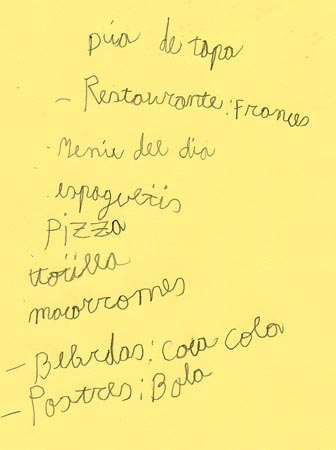 púa de tapa
- Restaurante: Frances
·Menie del dia
espaguetis
Pizza
ttorilla
macorromes
- Beberdas: Coca cola
- Postres: Bola